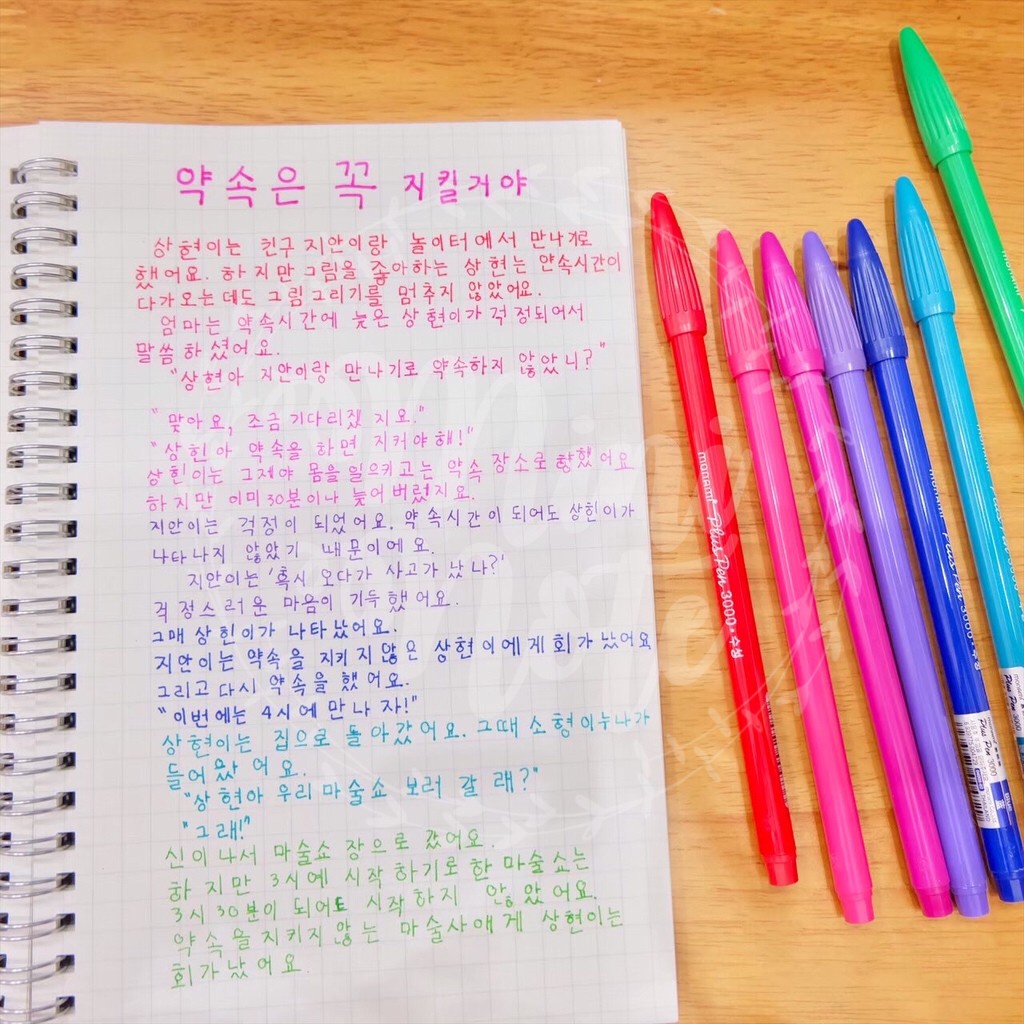 약속은 꼭 지킬거야
상현이는 친구 지안이랑 놀이터에서 만나기로
했어요. 하지만 그림을 좋아하는 상현는 얀속시간이
다가오는데도 그림그리기를 멈추지 않았어요.
엄마는 약속시간에 늦은 상현이가 걱정되어서
말씀하셨어요.
"상현아 지안이랑 만나기로 약속하지 않았니?"
"맞아요, 조금 기다리겠지요."
"상힌아 약속을 하면 지켜야해!"
상힌이는 그제야 몸을 일으키고는 약속 장소로 향했어요
하지만 이미 30분이나 늦어버렸지요.
지안이는 걱정이 되었어요. 약속시간이 되어도 상힌이가
나타나지 않았기 때문이에요.
지안이는 '혹시 오다가 사고가 났나?'
걱정스러운 마음이 가득했어요.
그때 상힌이가 나타났어요.
지안이는 약속을 지키지않은 상현이에게 회가 났어요
그리고 다시 약속을 했어요.
"이번에는 4시에 만나자!"
상현이는 집으로 돌아갔어요. 그때 소형이누나가
들어왔어요.
"상현아 우리 마술쇼 보러 갈래?"
"그래!"
신이나서 마술쇼장으로 갔어요.
하지만 3시에 시작하기로한 마술쇼는
3시 30분이 되어도 시작하지 않았어요.
약속을지키지않는 마술사애게 상현이는
회가났어요.
monami Plus Pen 3000·수성
Plus Pen 3000
Ning
Note